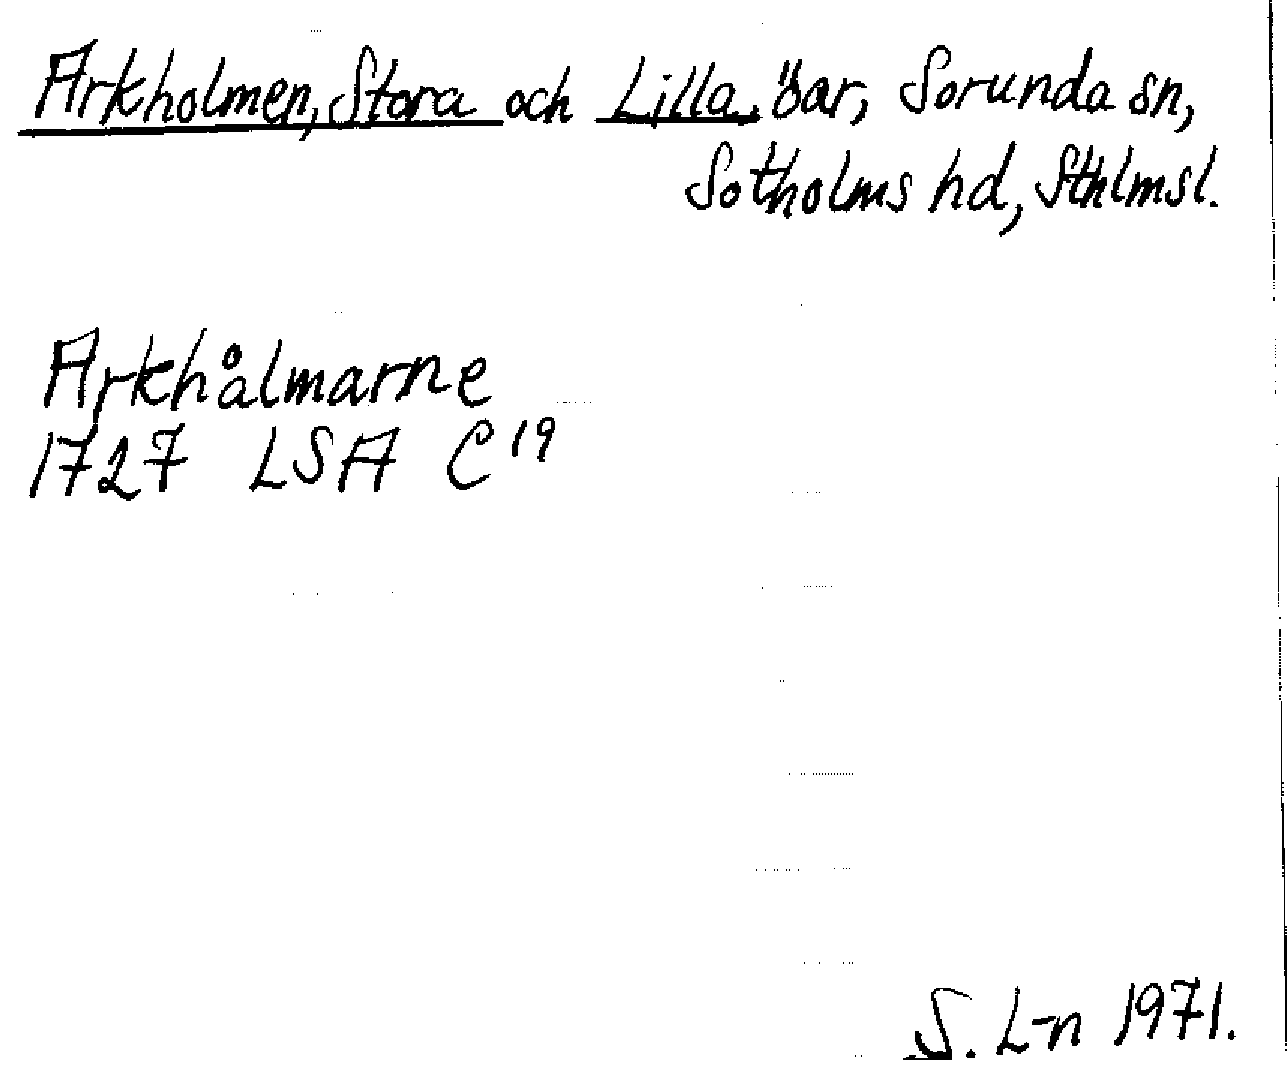 Arkholmen, Stora och Lilla, öar, Sorunda sn,
Sotholms hd, Sthlmsl.
Arkhålmarne
1727 LSA C 19
S. L-n 1971.